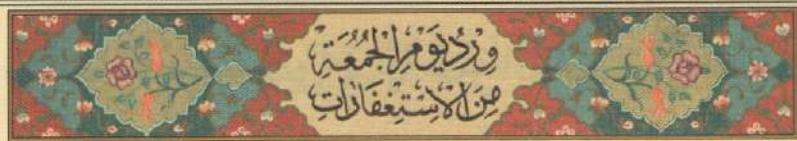 وِرْدُ يَوْمِ الْجُمُعَةِ
مِنَ الْاِسْتِغْفَارَاتِ